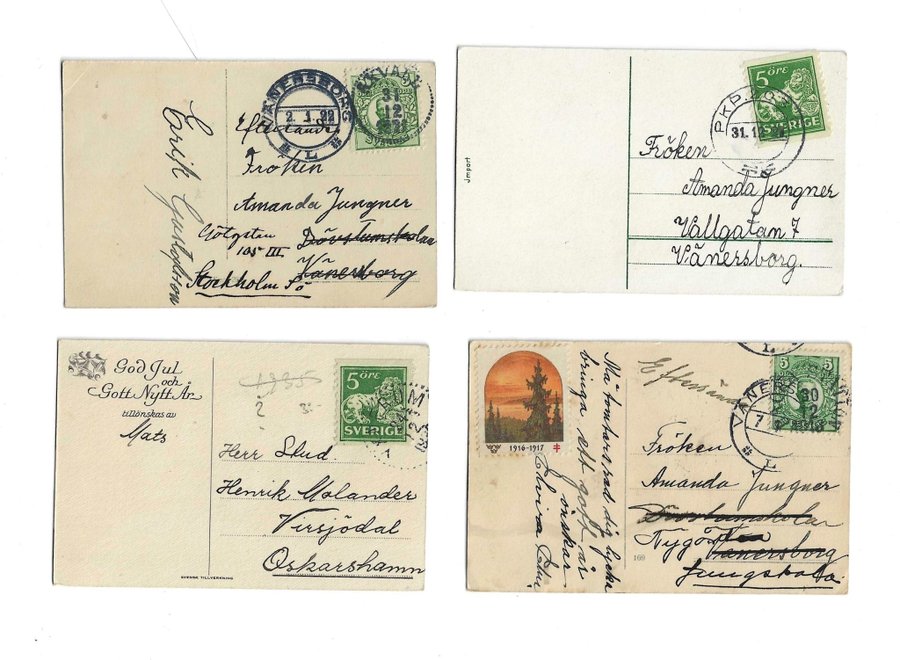 VÄNERSBORG
2.1.22
L
31
12
Eftersändes
Fröken
Amanda Jungner
Götgatan
105 III
Dövstumskolan
Vänersborg
Stockholm Sö
Erik Gustafsson
5 ÖRE
SVERIGE
PKP
31.12
Import
Fröken
Amanda Jungner
Vallgatan 7
Vänersborg.
God Jul
och
Gott Nytt År
tillönskas av
Mats
1935
?
5 ÖRE
SVERIGE
Herr Stud.
Henrik Molander
Virsjödal
Oskarshamn
SVENSK TILLVERKNING
1916-1917
Må tomtarsrad dig lycka
bringa ett gott år
önskar
Elvira
Eftersänd
5
30
12
VÄNERS
7
L
Fröken
Amanda Jungner
Dövstumskolan
Vänersborg
Ljungskola
169